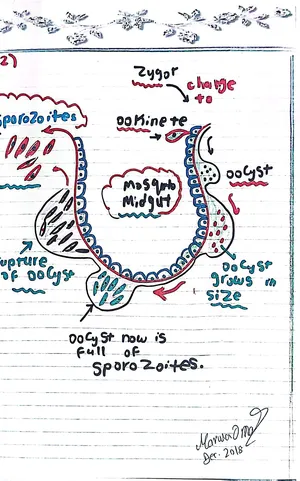 2)
Zygot
change
to
Sporozoites
OoKinete
OoCyst
Mosquito
Midgut
rupture
of OoCyst
OoCyst
grows in
size
OoCyst now is
full of
Sporozoites.
Marwa Omar
Dec. 2018